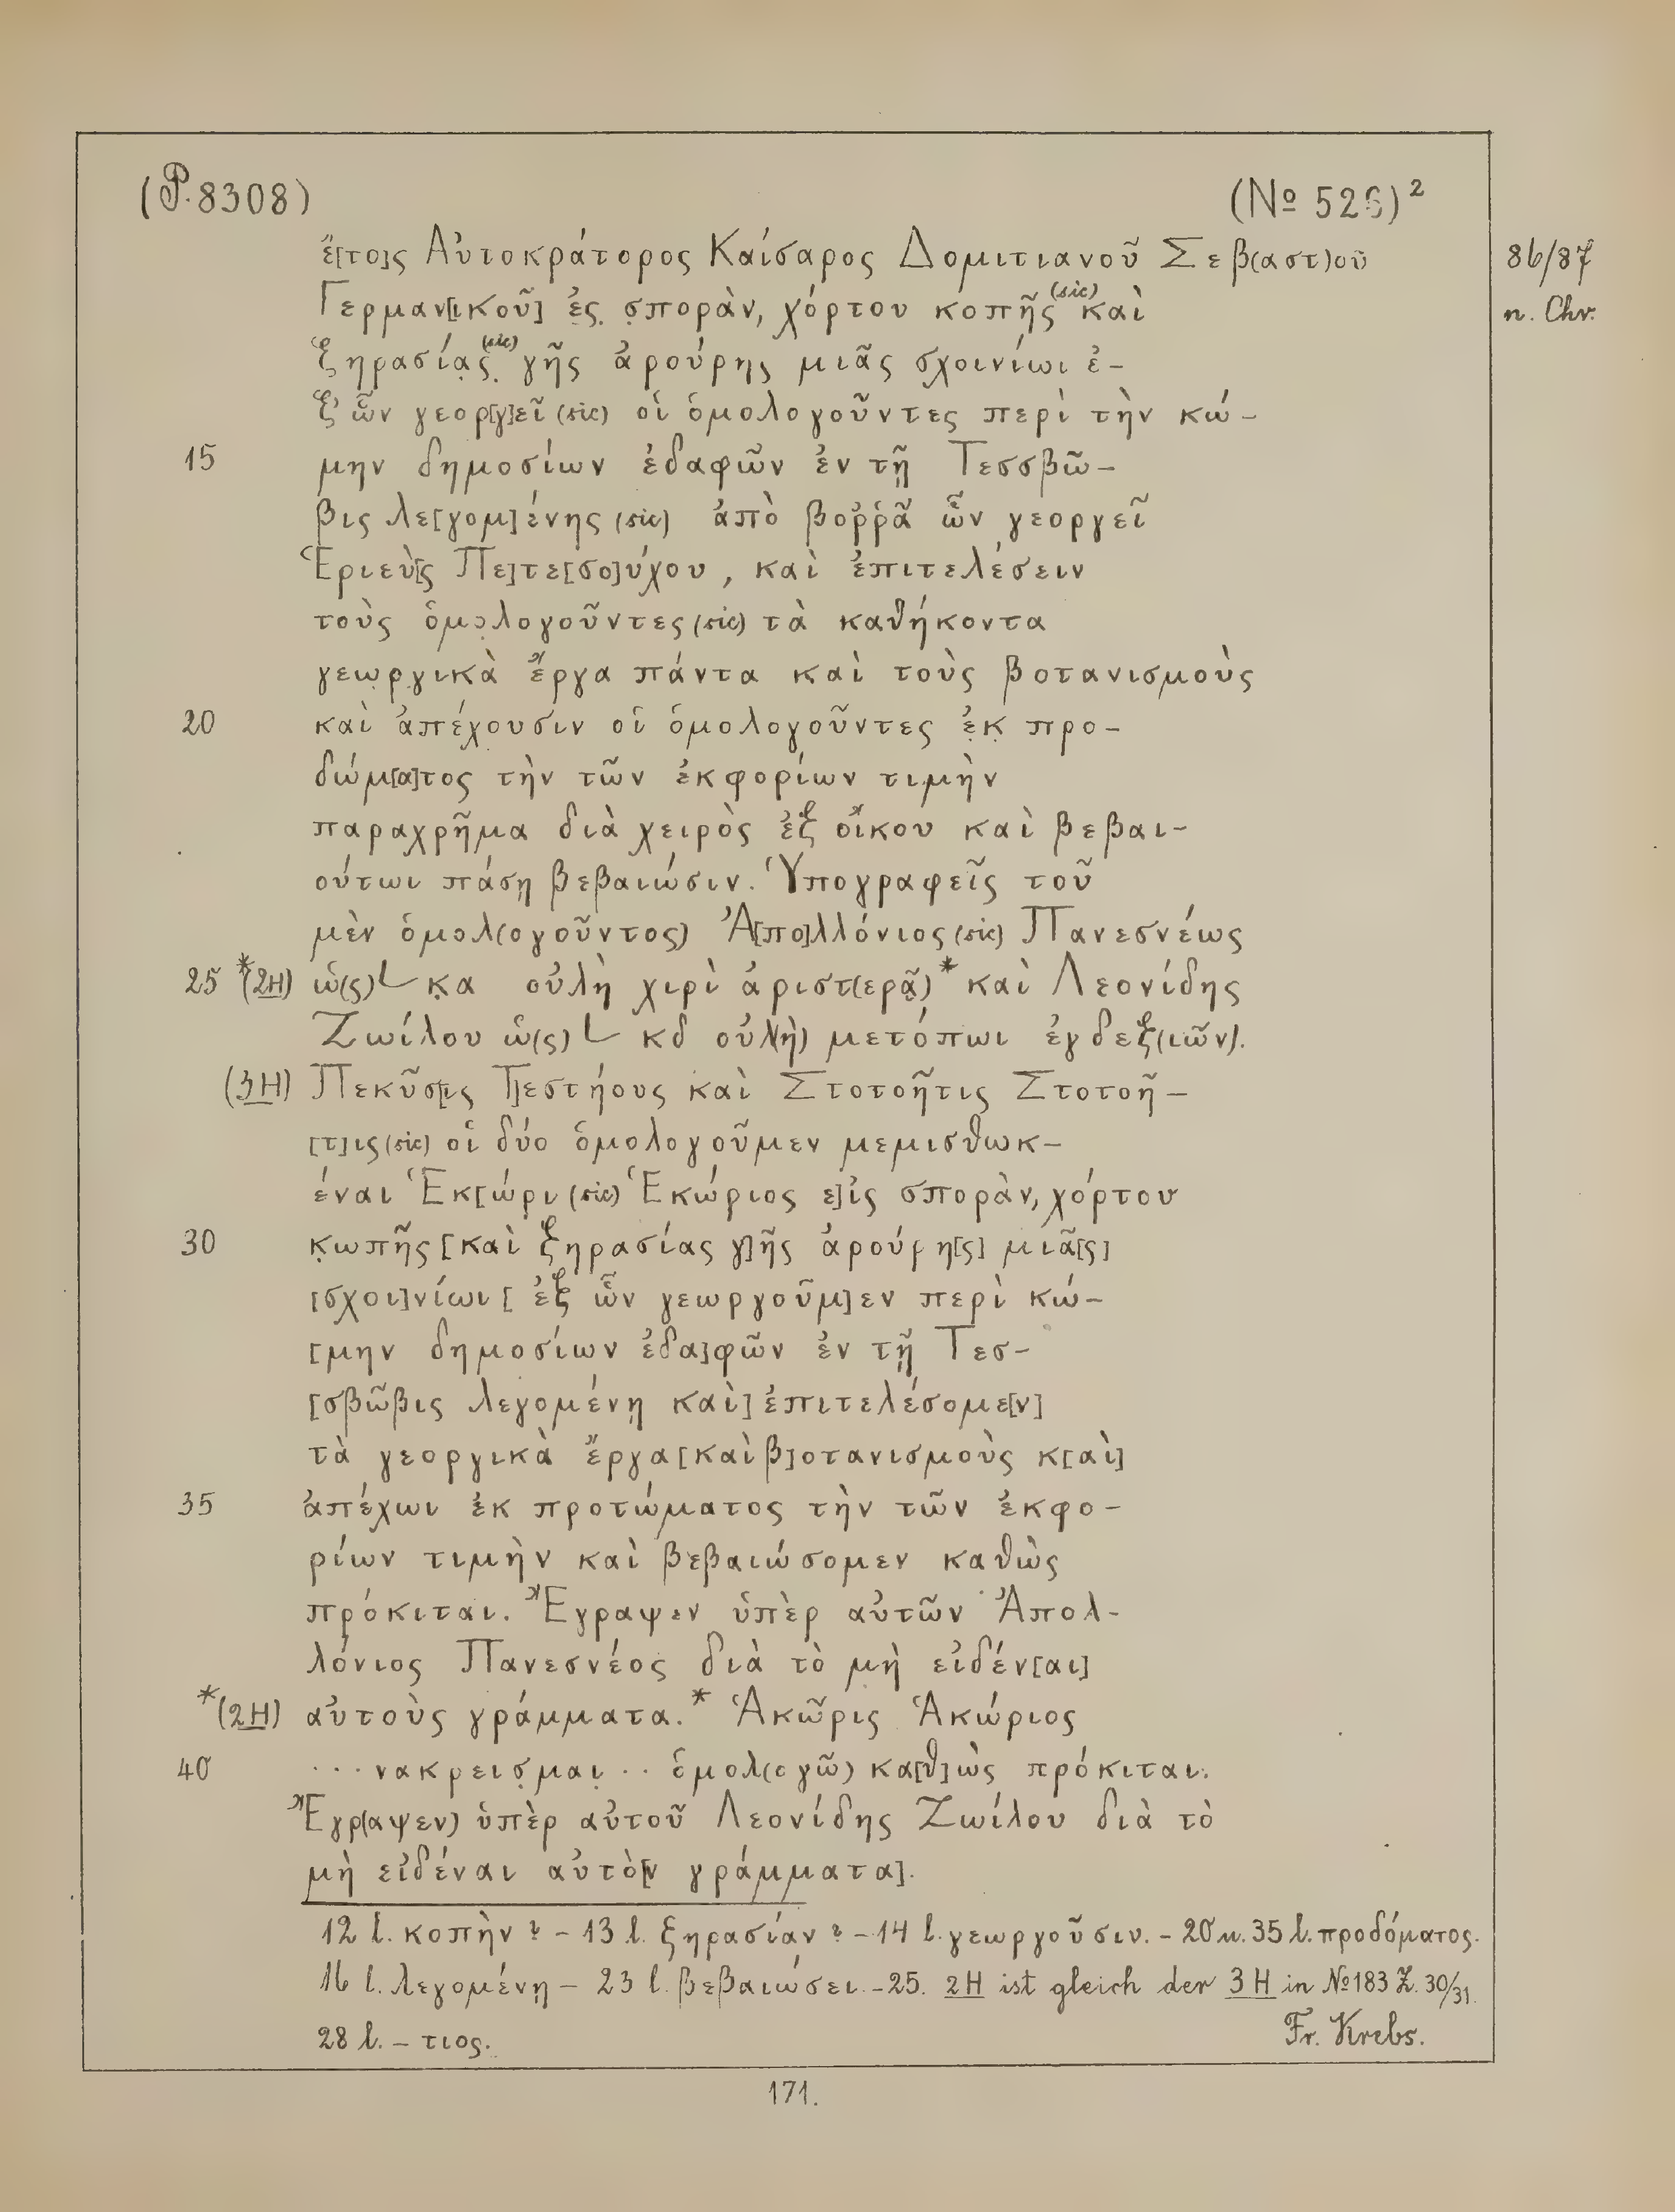 (P. 8308) (№ 526)²
ἔ[το]ς Αὐτοκράτορος Καίσαρος Δομιτιανοῦ Σεβ(αστ)οῦ 86/87
Γερμαν[ικοῦ] ἐς σποράν, χόρτου κοπῆς (sic) καὶ n. Chr.
ξηρασίας (sic) γῆς ἀρούρης μιᾶς σχοινίωι ἐ-
ξ ὧν γεορ[γ]εῖ (sic) οἱ ὁμολογοῦντες περὶ τὴν κώ-
15 μην δημοσίων ἐδαφῶν ἐν τῇ Τεσσβῶ-
βις λε[γομ]ένης (sic) ἀπὸ βορρᾶ ὧν γεοργεῖ
Ἑριεὺ[ς Πε]τε[σο]ύχου, καὶ ἐπιτελέσειν
τοὺς ὁμολογοῦντες (sic) τὰ καθήκοντα
γεωργικὰ ἔργα πάντα καὶ τοὺς βοτανισμοὺς
20 καὶ ἀπέχουσιν οἱ ὁμολογοῦντες ἐκ προ-
δώμ[α]τος τὴν τῶν ἐκφορίων τιμὴν
παραχρῆμα διὰ χειρὸς ἐξ οἴκου καὶ βεβαι-
ούτωι πάσῃ βεβαιώσιν. Ὑπογραφεῖς τοῦ
μὲν ὁμολ(ογοῦντος) Ἀ[πο]λλόνιος (sic) Πανεσνέως
25 *(2H) ὡ(ς) L κα οὐλὴ χιρὶ ἀριστ(ερᾷ)* καὶ Λεονίδης
Ζωίλου ὡ(ς) L κδ οὐλ(ὴ) μετόπωι ἐγ δεξ(ιῶν).
(3H) Πεκῦσ[ι]ς Τ]εστήους καὶ Στοτοῆτις Στοτοῆ-
[τ]ις (sic) οἱ δύο ὁμολογοῦμεν μεμισθωκ-
έναι Ἑκ[ώρι (sic) Ἑκώριος ε]ἰς σποράν, χόρτου
30 κωπῆς [καὶ ξηρασίας γ]ῆς ἀρούρη[ς] μιᾶ[ς]
[σχοι]νίωι [ἐξ ὧν γεωργοῦμ]εν περὶ κώ-
[μην δημοσίων ἐδα]φῶν ἐν τῇ Τεσ-
[σβῶβις λεγομένῃ καὶ] ἐπιτελέσομε[ν]
τὰ γεοργικὰ ἔργα [καὶ β]οτανισμοὺς κ[αὶ]
35 ἀπέχωι ἐκ προτώματος τὴν τῶν ἐκφο-
ρίων τιμὴν καὶ βεβαιώσομεν καθὼς
πρόκιται. Ἔγραψεν ὑπὲρ αὐτῶν Ἀπολ-
λόνιος Πανεσνέος διὰ τὸ μὴ εἰδέν[αι]
*(2H) αὐτοὺς γράμματα.* Ἁκῶρις Ἁκώριος
40 ···νακρεισμαι·· ὁμολ(ογῶ) κα[θ]ὼς πρόκιται.
Ἔγρ(αψεν) ὑπὲρ αὐτοῦ Λεονίδης Ζωίλου διὰ τὸ
μὴ εἰδέναι αὐτὸ[ν γράμματα].
12 l. κοπὴν ? – 13 l. ξηρασίαν ? – 14 l. γεωργοῦσιν. – 20 u. 35 l. προδόματος.
16 l. λεγομένῃ – 23 l. βεβαιώσει. – 25. 2H ist gleich der 3H in №183 Z. 30/31.
28 l. – τιος. Fr. Krebs.
171.